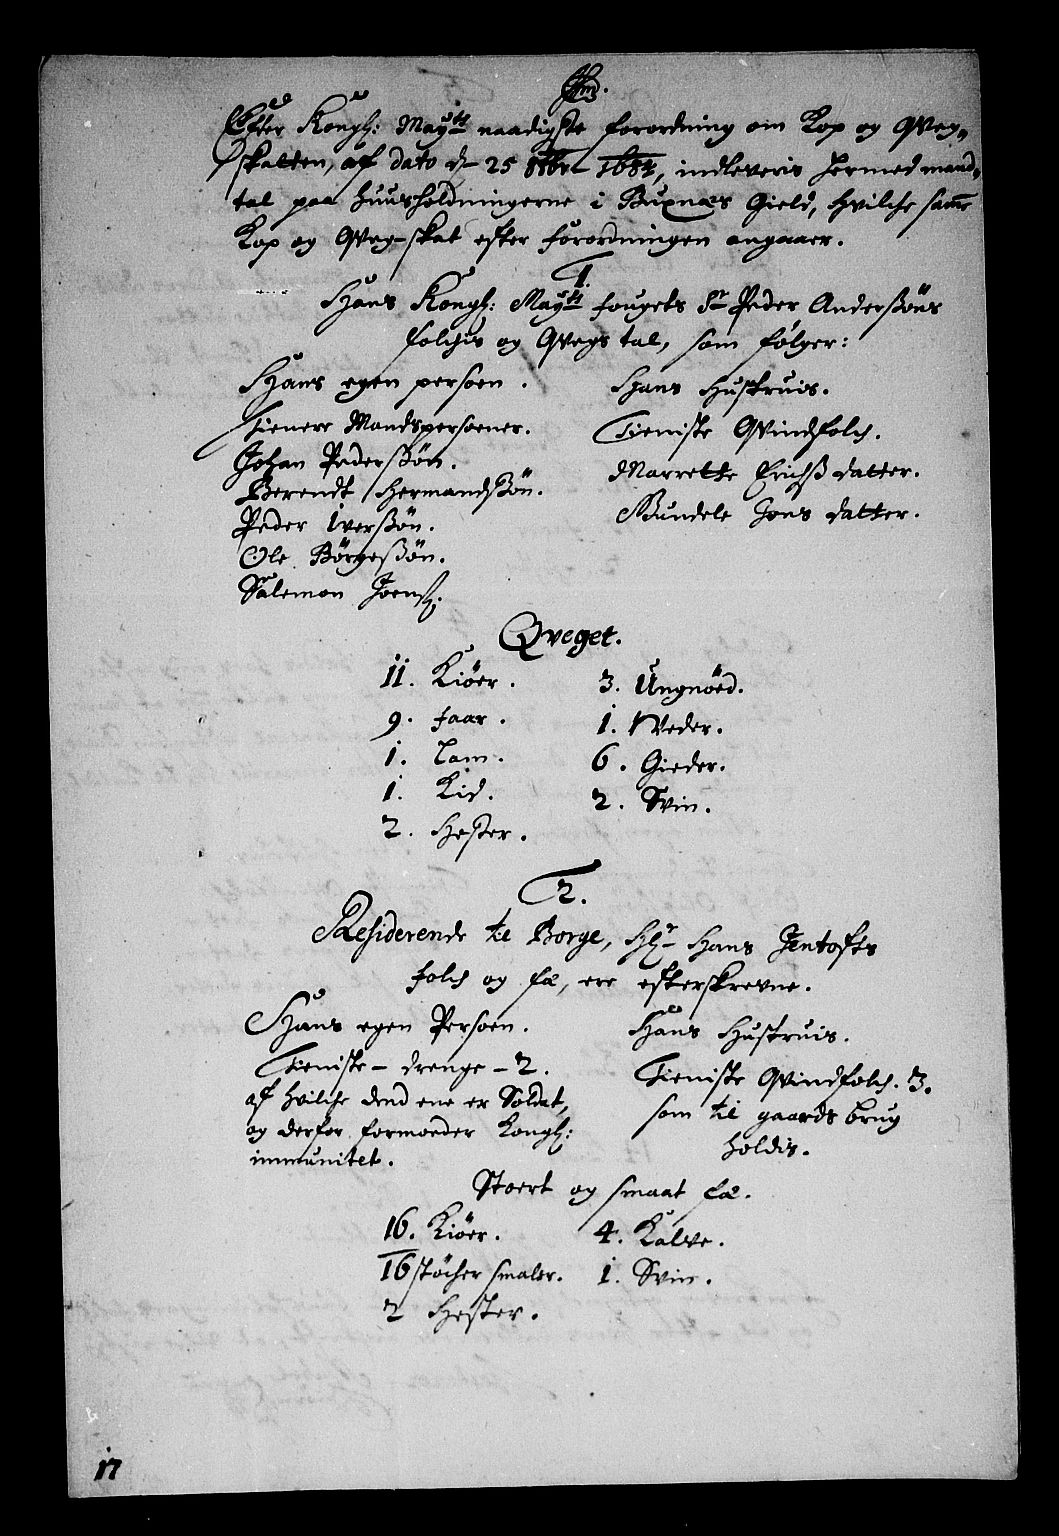 Efter Kongl: Maytz naadigste forordning om Kop og Qveg-
skatten, af dato d- 25 8tbr- 1684, indleveris hermed mand-
tal paa huusholdningerne i Buxnæs Gield, hvilche samme
Kop og Qveg-skat efter forordningen angaaer.
1.
Hans Kongl: Maytz fougets Sr Peder Anderßöns
folchis og Qvegs tal, som følger:
Hans egen persoen.
Hans Hustruis.
Tienere Mandspersoener.
Tieniste Qvindfolch.
Johan Pederßön.
Marrette Erichß datter.
Berendt Hermandßön.
Gundele Jons datter.
Peder Iverßön.
Ole Börgeßön.
Salemon Joenß.
Qveget.
11. Kiöer.
3. Ungnöed.
9. faar.
1. Veder.
1. Lam.
6. Gieder.
1. Kid.
2. Svin.
2. Hester.
2.
Residerende til Borge, Hr Hans Jentofts
folch og fæ, ere efterskrevne.
Hans egen Persoen.
Hans Hustruis.
Tieniste- drenge - 2.
Tieniste Qvindfolch. 3.
af hvilche dend ene er Soldat,
som til gaards brug
og derfor formoeder Kongl:
holdis.
immunitet.
Stoert og smaat fæ.
16. Kiöer.
4. Kalve.
16 støcher smaler.
1. Svin.
2 Hester.
17